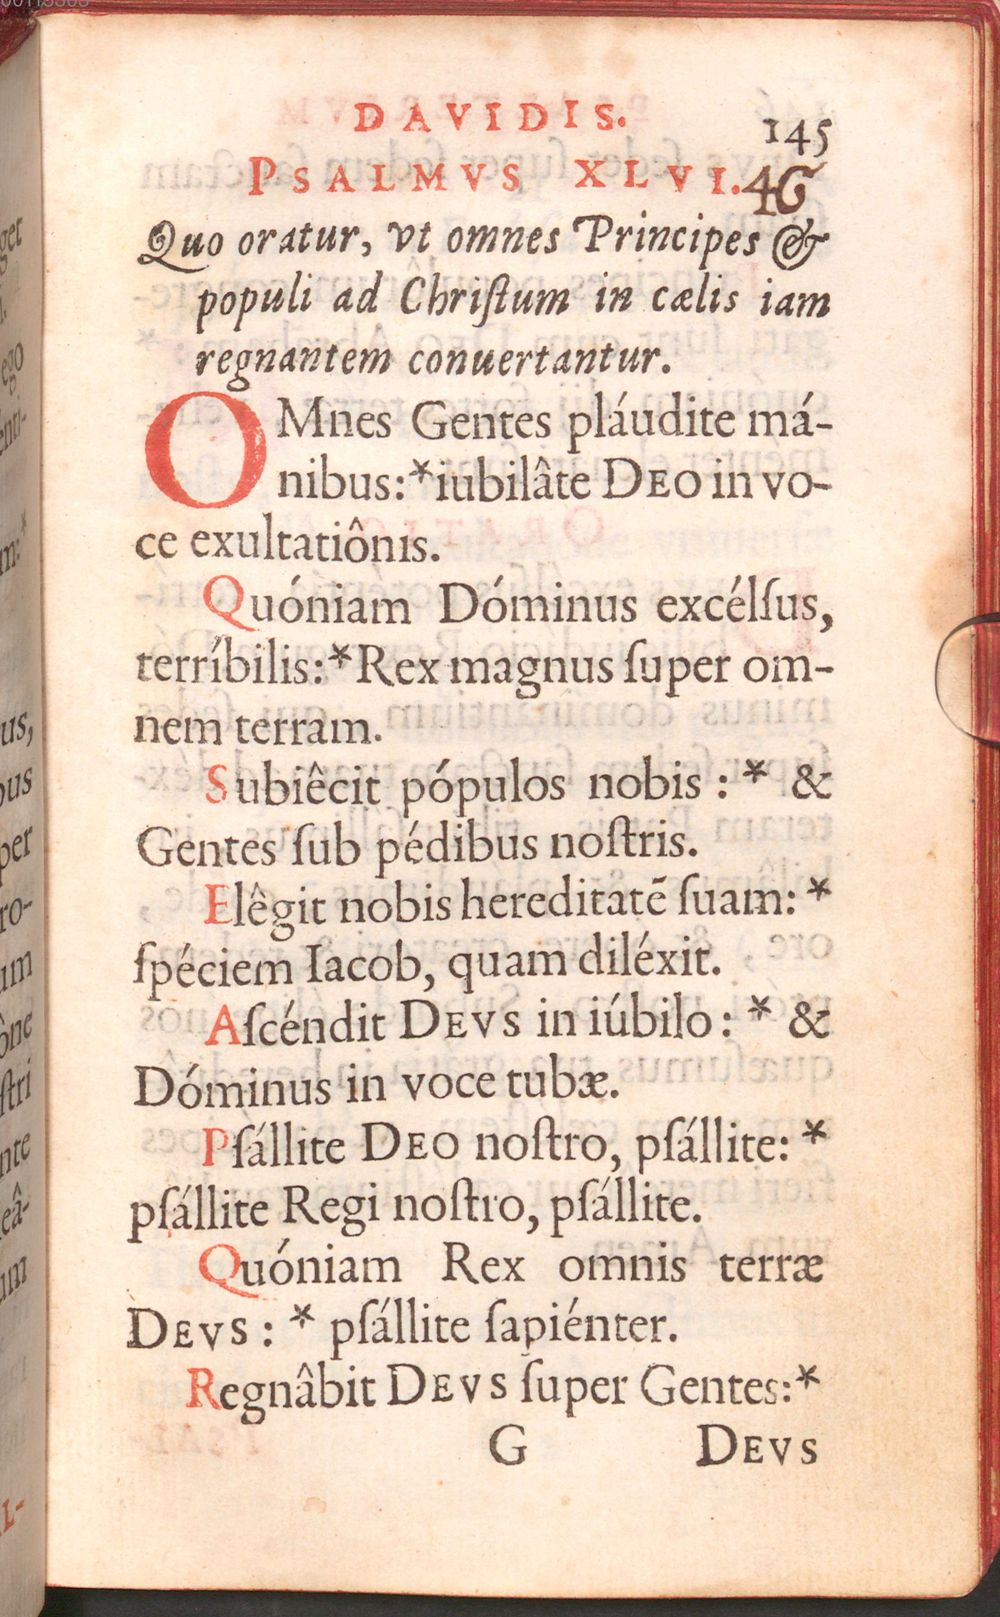 DAVIDIS.
145
PSALMVS XLVI.
46
Quo oratur, vt omnes Principes &
populi ad Chriſtum in cælis iam
regnantem conuertantur.
OMnes Gentes pláudite má-
nibus:*iubilâte DEO in vo-
ce exultatiônis.
Quóniam Dóminus excélſus,
terríbilis:*Rex magnus ſuper om-
nem terram.
Subiêcit pópulos nobis : * &
Gentes ſub pédibus noſtris.
Elêgit nobis hereditatē ſuam: *
ſpéciem Iacob, quam diléxit.
Aſcéndit DEVS in iúbilo : * &
Dóminus in voce tubæ.
Pſállite DEO noſtro, pſállite: *
pſállite Regi noſtro, pſállite.
Quóniam Rex omnis terræ
DEVS : * pſállite ſapiénter.
Regnâbit DEVS ſuper Gentes:*
G DEVS